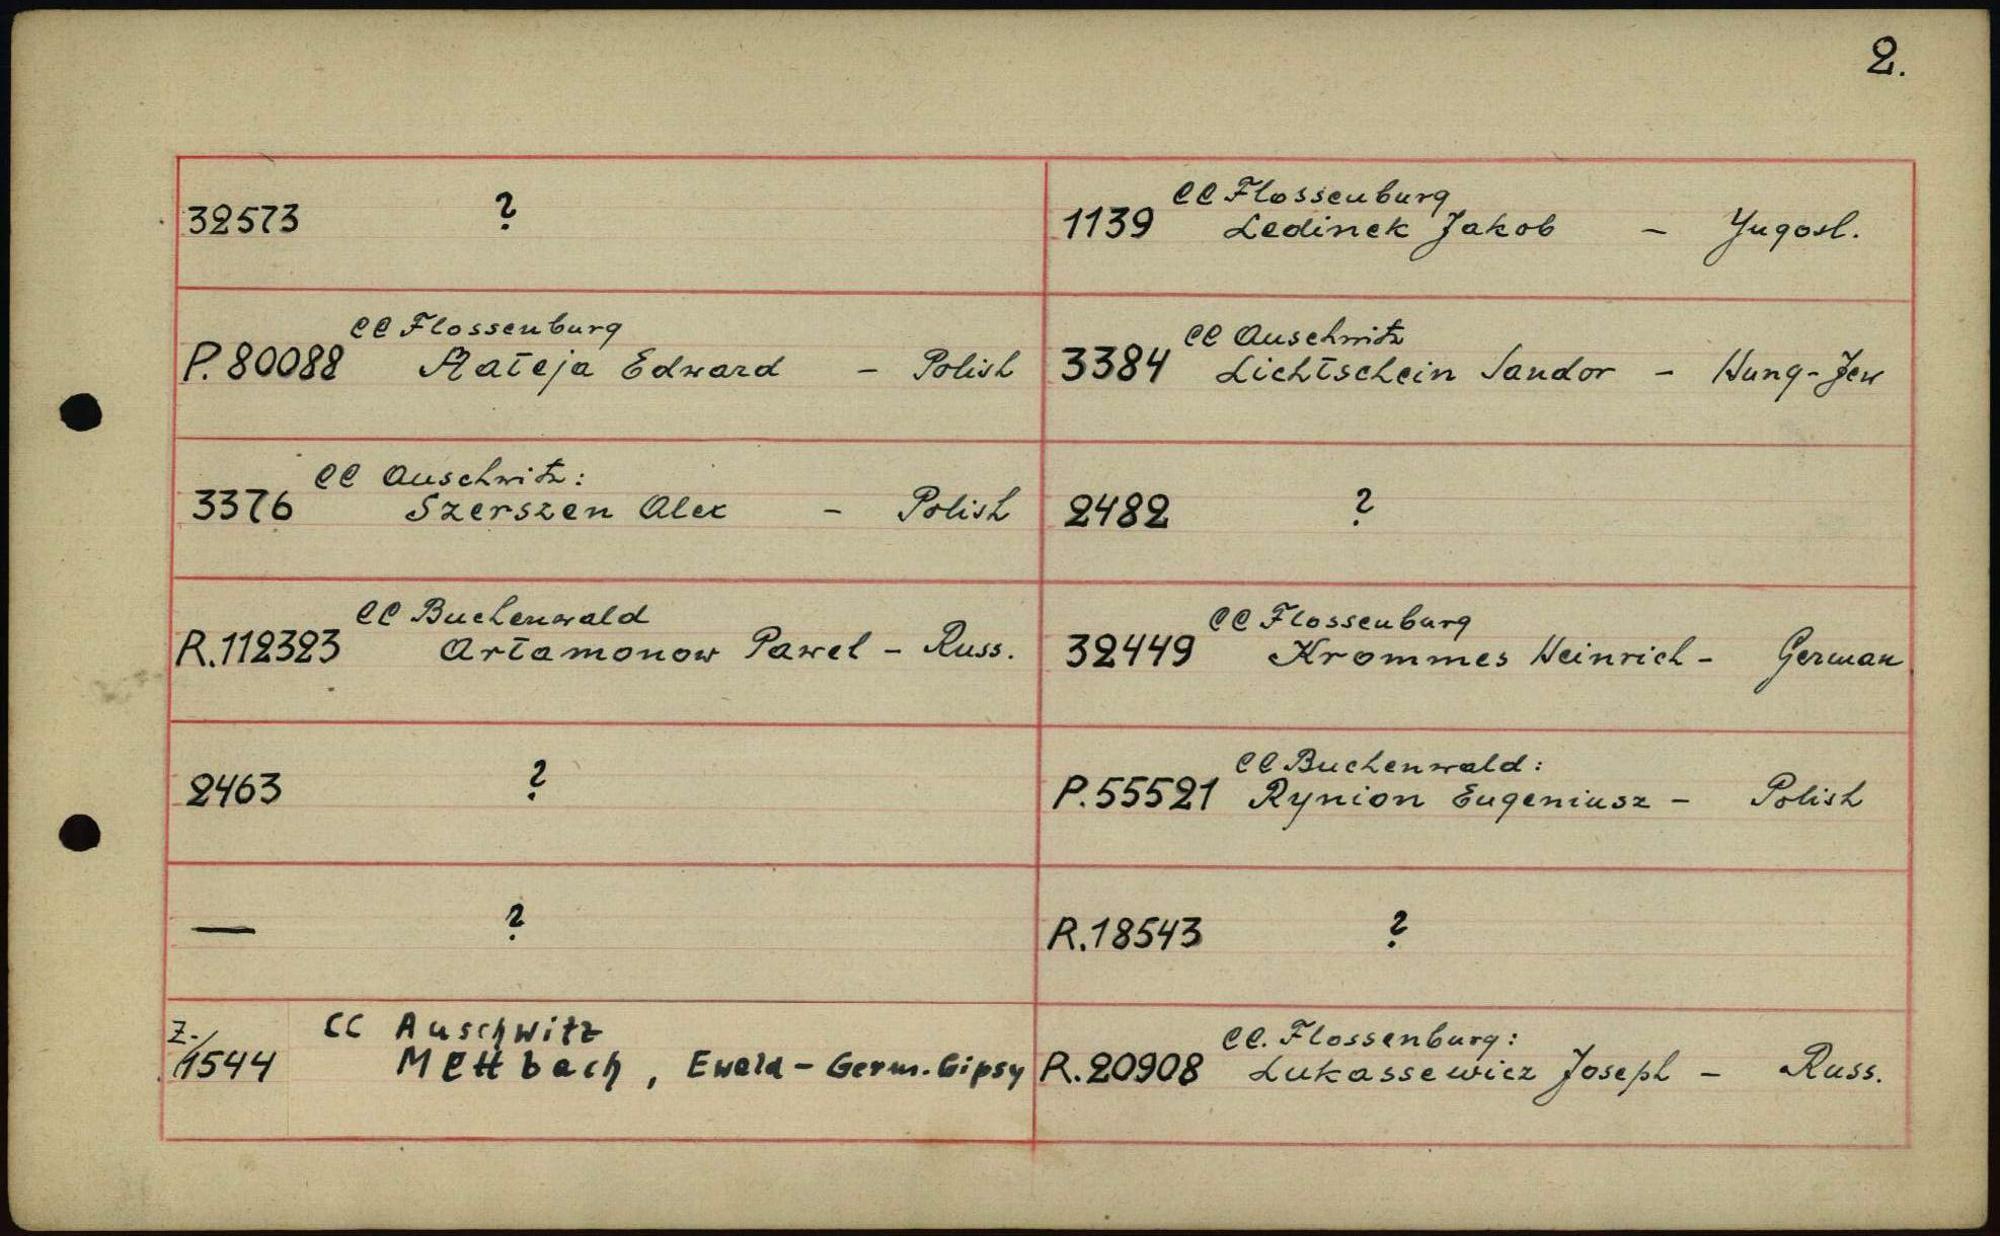 2.
32573 ?
CC Flossenburg
1139 Ledinek Jakob – Yugosl.
CC Flossenburg
P. 80088 Edward – Polish
CC Auschwitz
3384 Lichtschein Sandor – Hung-Jew
CC Auschwitz:
3376 Szerszen Alex – Polish
2482 ?
CC Buchenwald
R.112323 Artamonow Pawel – Russ.
CC Flossenburg
32449 Krommes Heinrich – German
2463 ?
CC Buchenwald:
P.55521 Rynion Eugeniusz – Polish
— ?
R.18543 ?
CC Auschwitz
Z./1544 Mettbach, Ewald – Germ. Gipsy
CC. Flossenburg:
R.20908 Lukassewicz Joseph – Russ.